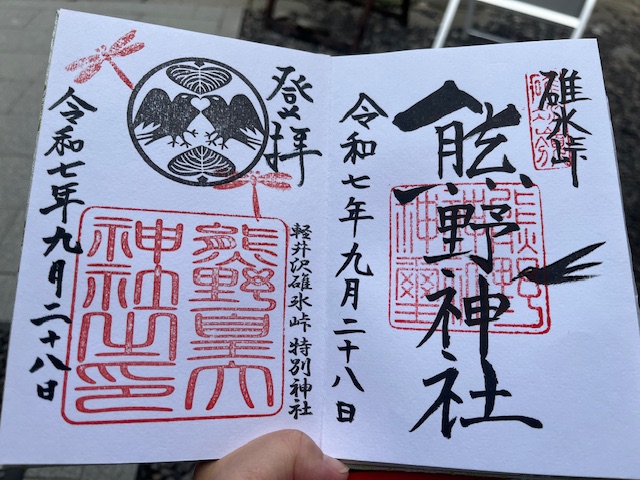 碓氷峠
熊野神社
令和七年九月二十八日
登拝
軽井沢碓氷峠 特別神社
熊野皇大
神社之印
令和七年九月二十八日